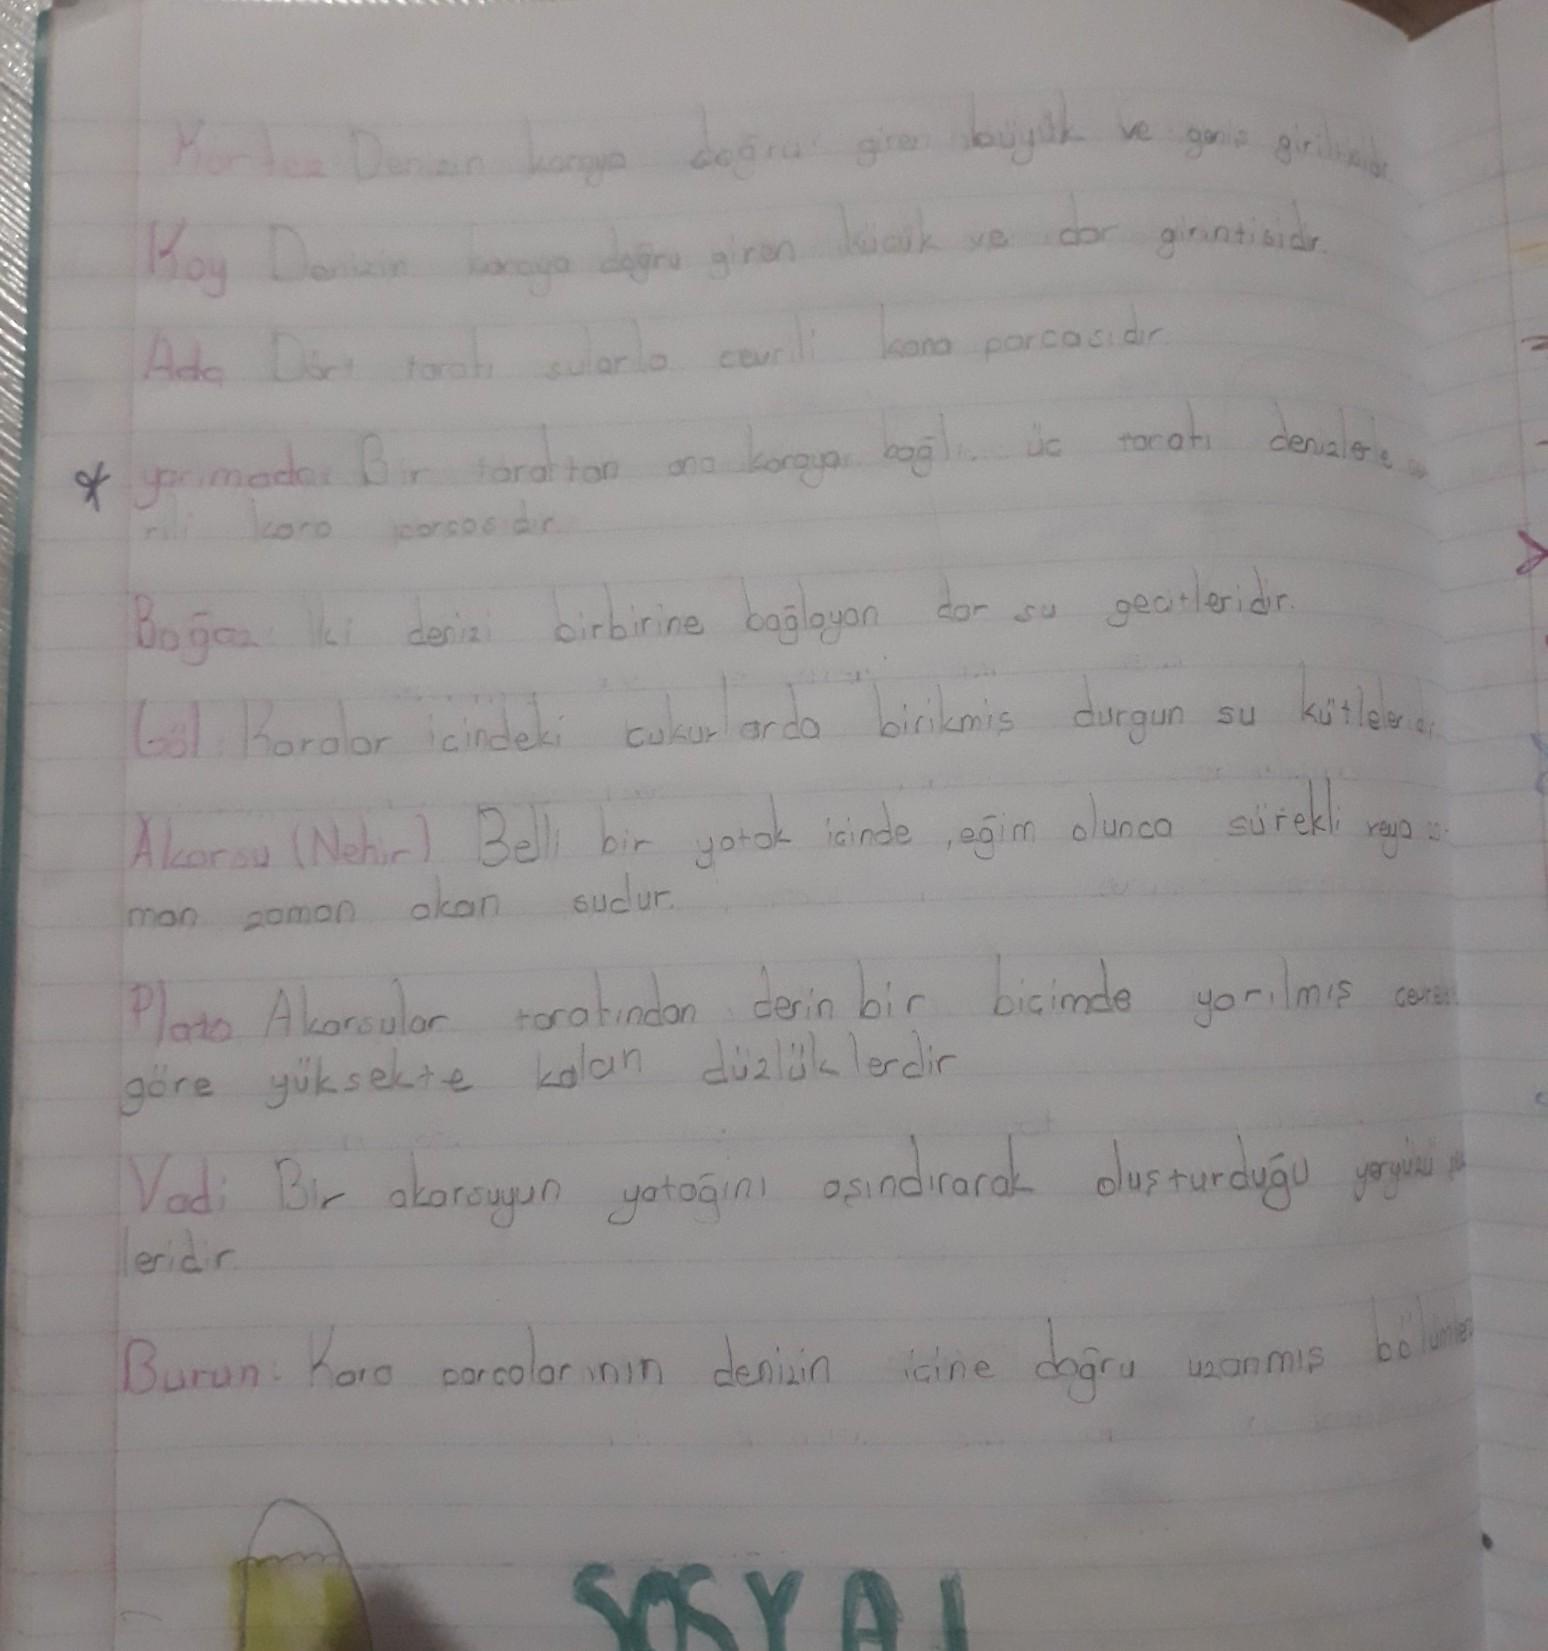 Körfez Denizin karaya doğru giren büyük ve geniş
Koy Denizin karaya doğru giren kücük ve dar girintisidir.
Ada Dört tarafı sularla cevrili kara parcasıdır.
* yarımada: Bir taraftan ana karaya bağlı üc tarafı denizlerle
rili kara parcasıdır
Boğaz: İki denizi birbirine bağlayan dar su gecitleridir.
Göl: Karalar icindeki cukurlarda birikmis durgun su kütleleridir
Akarsu (Nehir) Belli bir yatak icinde, eğim olunca sürekli veya
man zaman akan sudur.
Plato Akarsular tarafından derin bir bicimde yarılmış
göre yüksekte kalan düzlüklerdir
Vadi Bir akarsuyun yatağını aşındırarak oluşturduğu yeryüzü
leridir.
Burun: Kara parcalarının denizin icine doğru uzanmış
SOSYAL